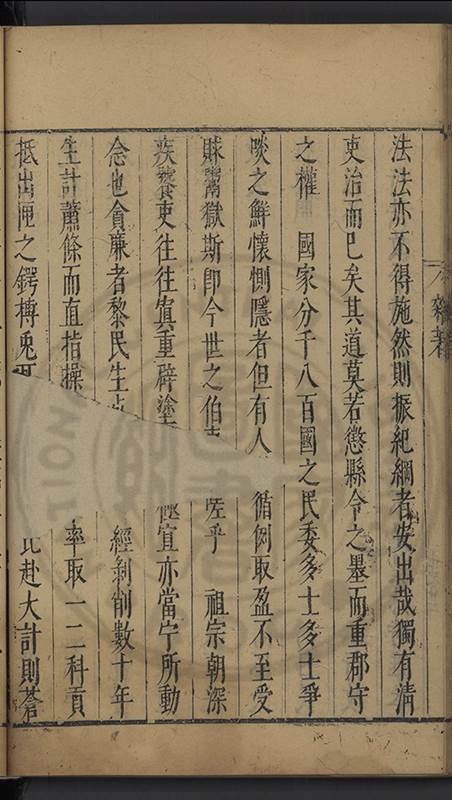 法法亦不得施然則振紀綱者安出哉獨有清
吏治而已矣其道莫若懲縣令之墨而重郡守
之權 國家分千八百國之民委多士多士爭
啖之鮮懷惻隱者但有人 循例取盈不至受
賕鬻獄斯卽今世之伯 嗟乎 祖宗朝深
疾饕吏往往寘重辟塗 宜亦當宁所動
念也貪廉者黎民生 經剝削數十年
生計蕭條而直指操 率取一二科貢
抵出匣之鍔搏兎 比赴大計則蒼
雜著